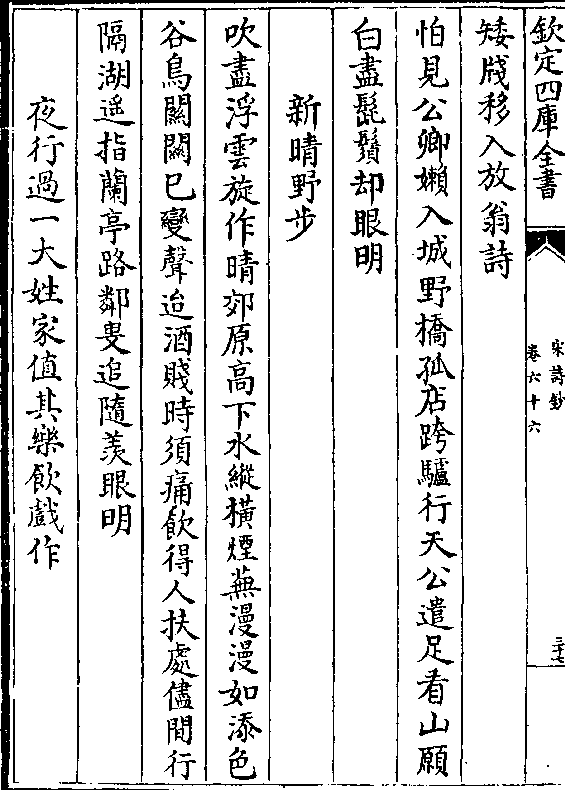 欽定四庫全書
宋詩鈔
卷六十六
三十七
矮牋移入放翁詩
怕見公卿嬾入城野橋孤店跨驢行天公遣足看山願
白盡髭鬚却眼明
新晴野步
吹盡浮雲旋作晴郊原高下水縱橫煙蕪漫漫如添色
谷鳥關關已變聲迨酒賤時須痛飲得人扶處儘閒行
隔湖遥指蘭亭路鄰叟追隨羨眼明
夜行過一大姓家值其樂飲戲作